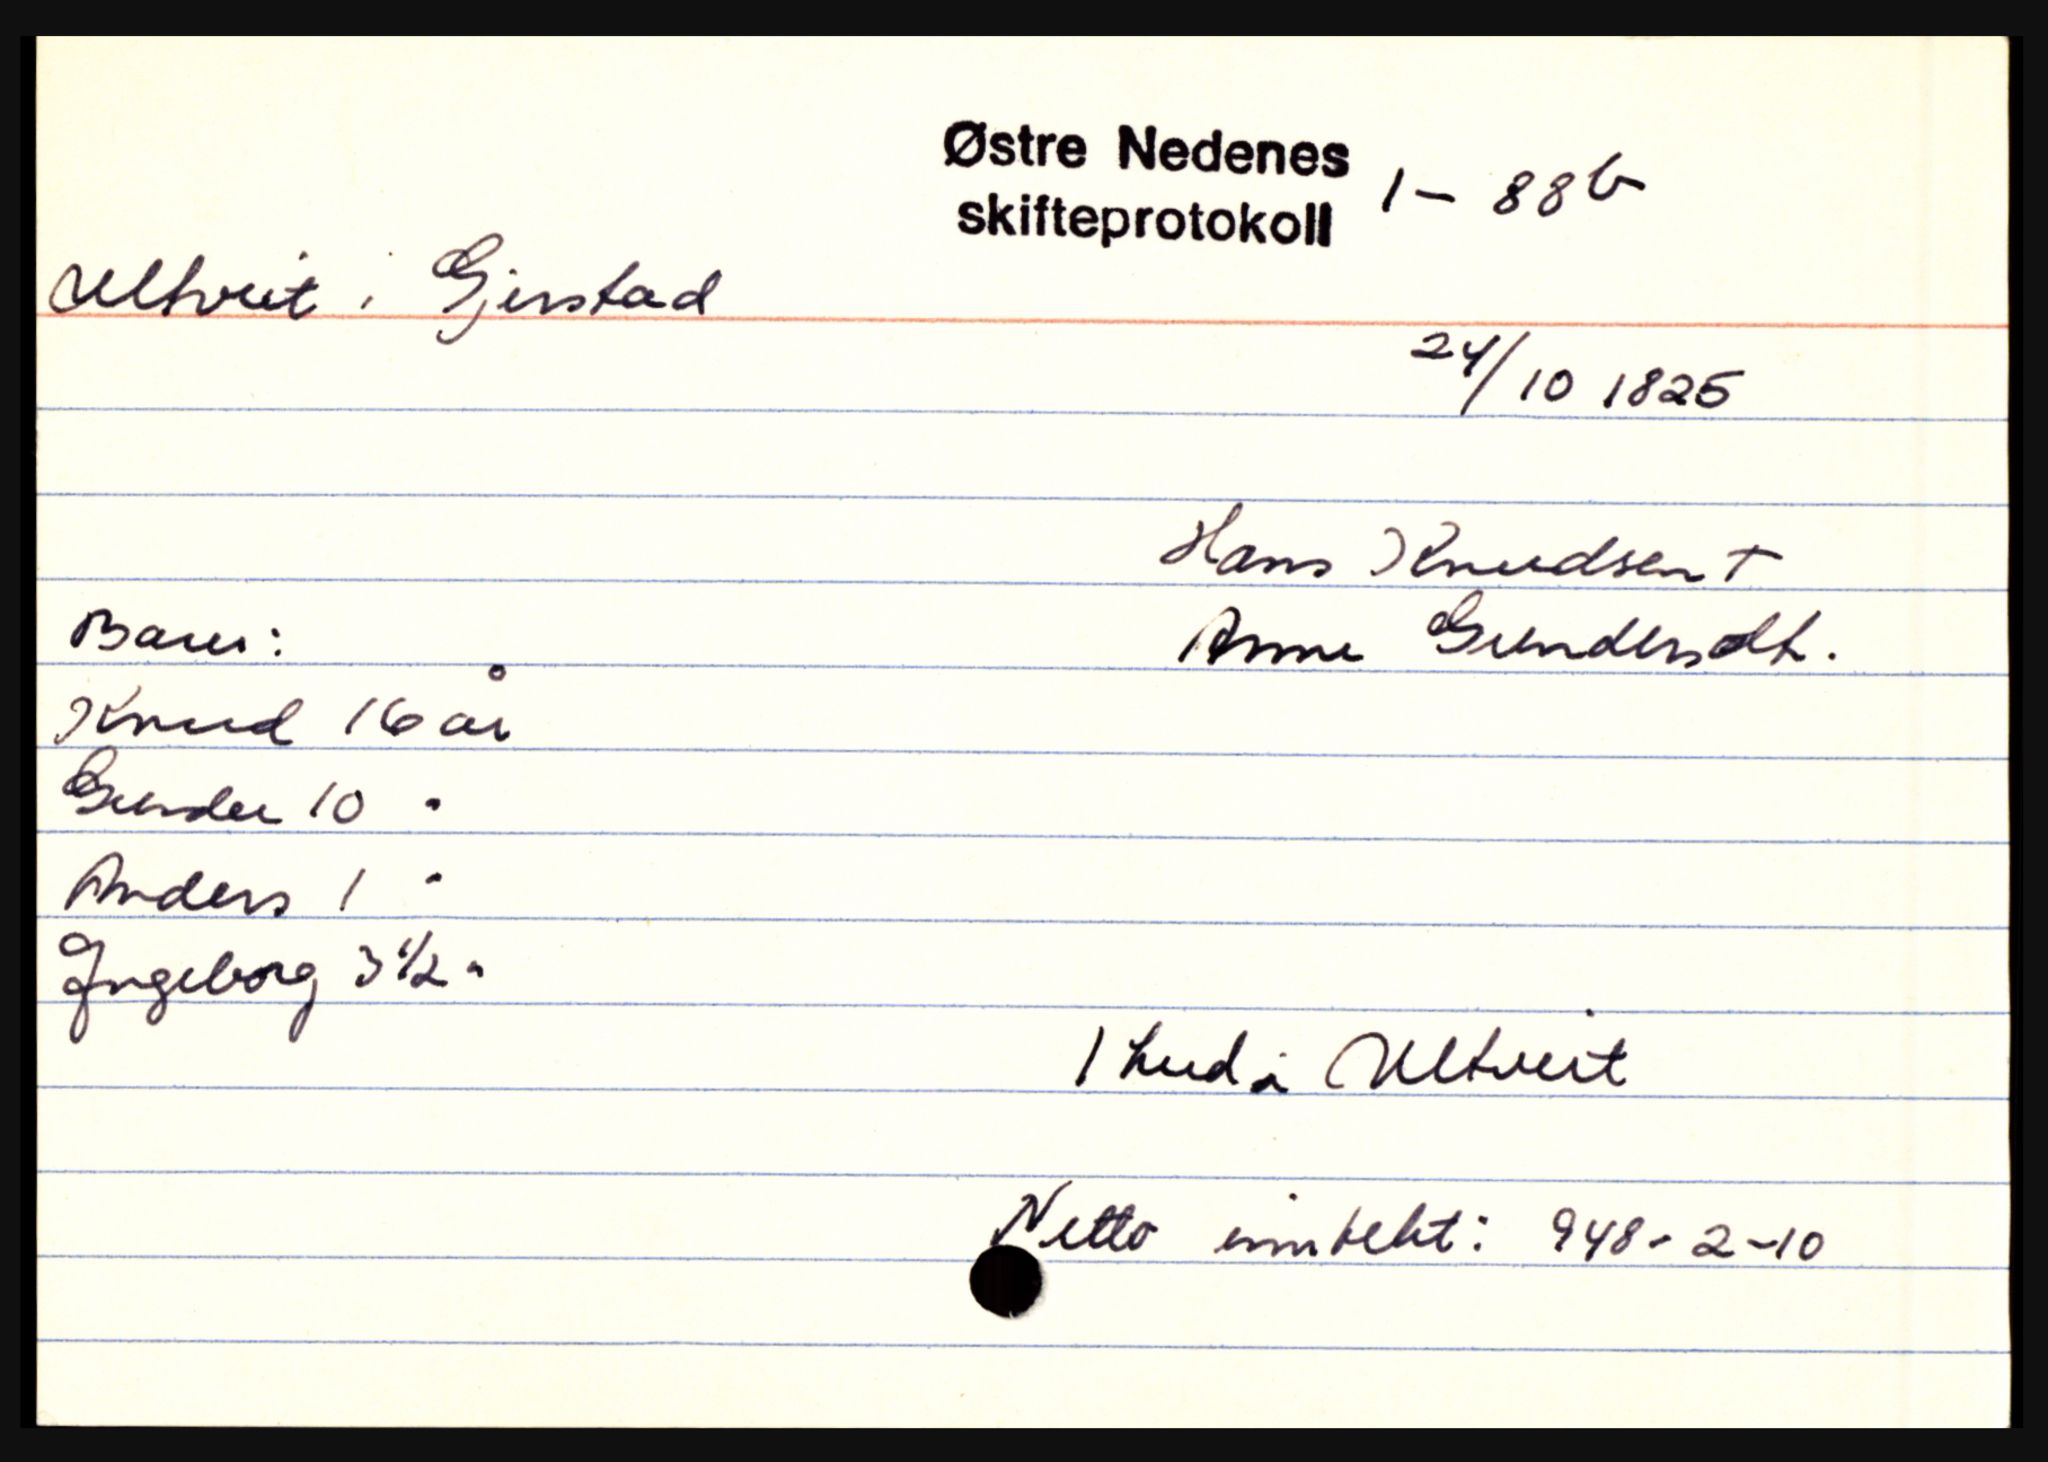 Østre Nedenes
skifteprotokoll 1-88b
Ultveit i Gjerstad
24/10 1825
Hans Knudsen +
Barn:
Anne Gundersdt.
Knud 16 år
Gunder 10 "
Anders 1 "
Ingeborg 3 1/2 "
1 hud i Ultveit
Netto inntekt: 948-2-10